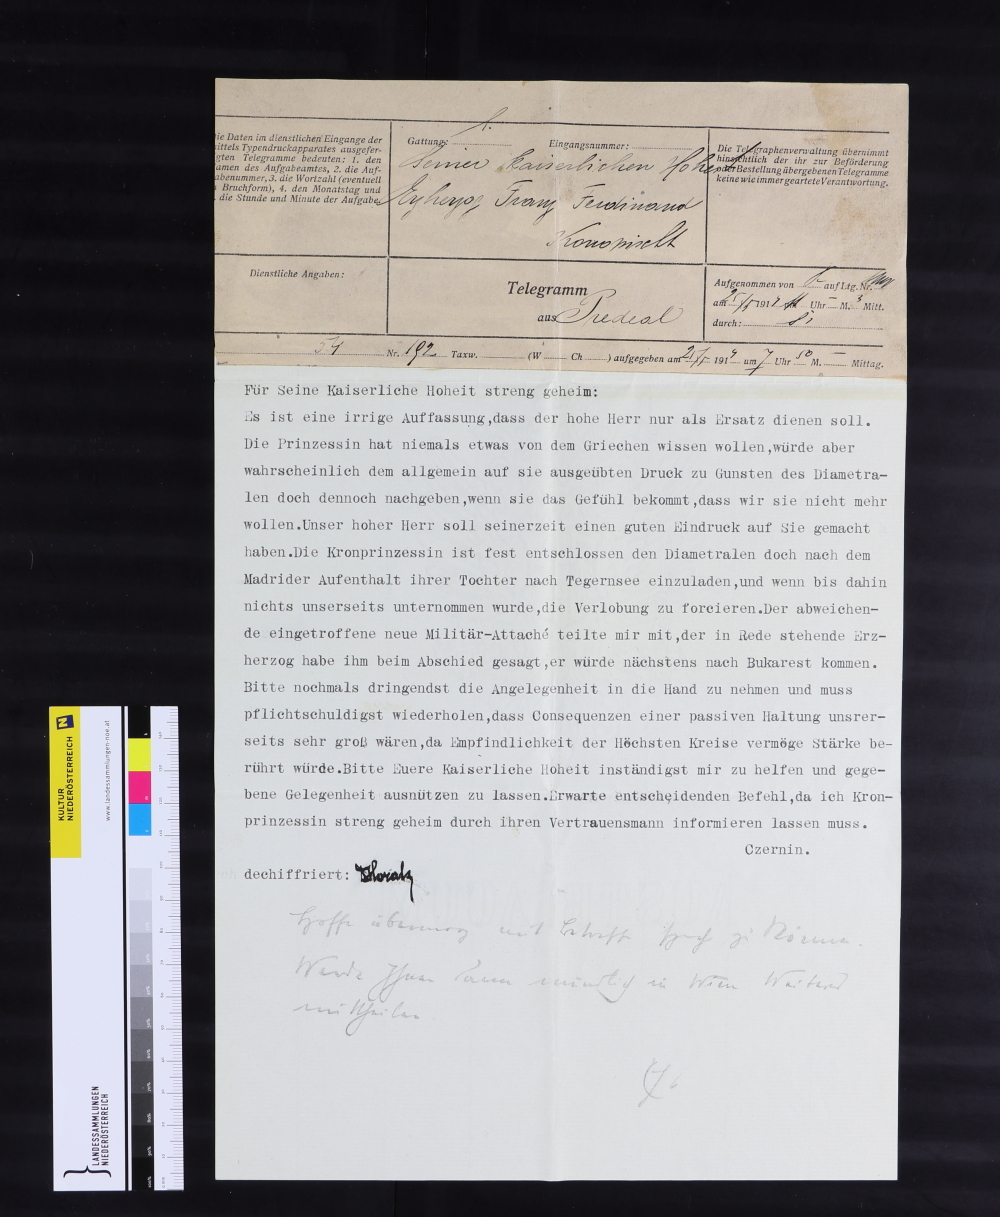 ie Daten im dienstlichen Eingange der
ittels Typendruckapparates ausgefer-
gten Telegramme bedeuten: 1. den
amen des Aufgabeamtes, 2. die Auf-
abenummer, 3. die Wortzahl (eventuell
Bruchform), 4. den Monatstag und
die Stunde und Minute der Aufgabe.
Gattung:
Eingangsnummer:
Seiner Kaiserlichen Hoheit
Erzherzog Franz Ferdinand
Konopischt
Die Telegraphenverwaltung übernimmt
hinsichtlich der ihr zur Beförderung
oder Bestellung übergebenen Telegramme
keine wie immer geartete Verantwortung.
Dienstliche Angaben:
Telegramm
aus Predeal
Aufgenommen von auf Ltg. Nr.
am 25/5 191 Uhr M. Mitt.
durch:
51 Nr. 192 Taxw. (W Ch ) aufgegeben am 191 4 um 7 Uhr 50 M. Mittag.
Für Seine Kaiserliche Hoheit streng geheim:
Es ist eine irrige Auffassung,dass der hohe Herr nur als Ersatz dienen soll.
Die Prinzessin hat niemals etwas von dem Griechen wissen wollen,würde aber
wahrscheinlich dem allgemein auf sie ausgeübten Druck zu Gunsten des Diametra-
len doch dennoch nachgeben,wenn sie das Gefühl bekommt,dass wir sie nicht mehr
wollen.Unser hoher Herr soll seinerzeit einen guten Eindruck auf Sie gemacht
haben.Die Kronprinzessin ist fest entschlossen den Diametralen doch nach dem
Madrider Aufenthalt ihrer Tochter nach Tegernsee einzuladen,und wenn bis dahin
nichts unserseits unternommen wurde,die Verlobung zu forcieren.Der abweichen-
de eingetroffene neue Militär-Attaché teilte mir mit,der in Rede stehende Erz-
herzog habe ihm beim Abschied gesagt,er würde nächstens nach Bukarest kommen.
Bitte nochmals dringendst die Angelegenheit in die Hand zu nehmen und muss
pflichtschuldigst wiederholen,dass Consequenzen einer passiven Haltung unsrer-
seits sehr groß wären,da Empfindlichkeit der Höchsten Kreise vermöge Stärke be-
rührt würde.Bitte Euere Kaiserliche Hoheit inständigst mir zu helfen und gege-
bene Gelegenheit ausnützen zu lassen.Erwarte entscheidenden Befehl,da ich Kron-
prinzessin streng geheim durch ihren Vertrauensmann informieren lassen muss.
Czernin.
dechiffriert:
Hoffe übermorg mit
Werde Ihnen dann mündlich in Wien Weiteres
mittheilen.
KULTUR
NIEDERÖSTERREICH
www.landessammlungen-noe.at
LANDESSAMMLUNGEN
NIEDERÖSTERREICH